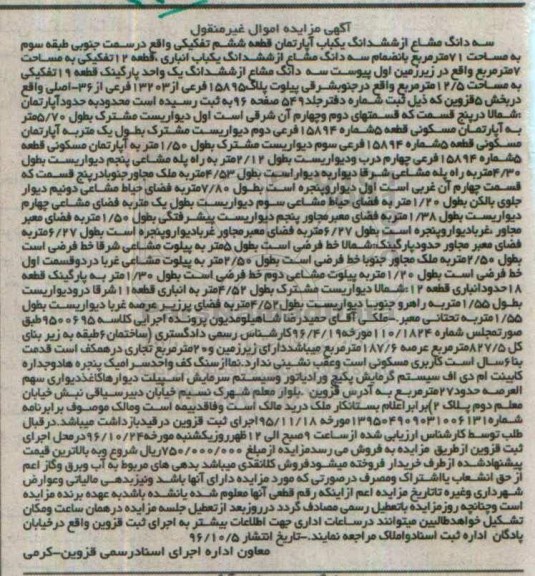 آگهی مزایده اموال غیرمنقول
سه دانگ مشاع از ششدانگ یکباب آپارتمان قطعه ششم تفکیکی واقع درسمت جنوبی طبقه سوم
به مساحت ۷۱مترمربع بانضمام سه دانگ مشاع از ششدانگ یکباب انباری قطعه ۱۲تفکیکی به مساحت
۷مترمربع واقع در زیرزمین اول پیوست سه دانگ مشاع ازششدانگ یک واحد پارکینگ قطعه ۱۹تفکیکی
به مساحت ۱۲/۵مترمربع واقع درجنوبشرقی پیلوت پلاک۱۵۸۹۵فرعی از۱۳۲۰۳فرعی از۳۶-اصلی واقع
دربخش ۵قزوین که ذیل ثبت شماره دفترجلد۵۴۹ صفحه ۹۶به ثبت رسیده است محدودبه حدودآپارتمان
:شمالا درپنج قسمت که قسمتهای دوم وچهارم آن شرقی است اول دیواریست مشترک بطول ۵/۷۰متر
به آپارتمان مسکونی قطعه ۵شماره ۱۵۸۹۴فرعی دوم دیواریست مشترک بطول یک متربه آپارتمان
مسکونی قطعه ۵شماره ۱۵۸۹۴فرعی سوم دیواریست مشترک بطول ۱/۵۰متر به آپارتمان مسکونی قطعه
۵شماره ۱۵۸۹۴فرعی چهارم درب ودیواریست بطول ۲/۱۲متر به راه پله مشاعی پنجم دیواریست بطول
۴/۳۰متربه راه پله مشاعی شرقا دیواربه دیواراست بطول ۴/۵۳متربه ملک مجاورجنوبادرپنج قسمت که
قسمت چهارم آن غربی است اول دیواروپنجره است بطول ۷/۸۰متربه فضای حیاط مشاعی دونیم دیوار
جلوی بالکن بطول ۱/۲۰متر به فضای حیاط مشاعی سوم دیواریست بطول یک متربه فضای مشاعی چهارم
دیواریست بطول ۱/۳۸متربه فضای معبرمجاور پنجم دیواریست پیشرفتگی بطول ۱/۵۰متربه فضای معبر
مجاور ،غربادیواروپنجره است بطول ۶/۲۷متربه فضای معبرمجاور غربادیواروپنجره است بطول ۶/۲۷متربه
فضای معبر مجاور حدودپارکینگ:شمالا خط فرضی است بطول ۵متر به پیلوت مشاعی شرقا خط فرضی است
بطول ۲/۵۰متربه ملک مجاور جنوبا خط فرضی است بطول ۲/۵۰متر به پیلوت مشاعی غربا دردوقسمت اول
خط فرضی است بطول ۱/۲۰متربه پیلوت مشاعی دوم خط فرضی است بطول ۱/۳۰متر به پارکینگ قطعه
۱۸حدودانباری قطعه ۱۲:شمالا دیواریست مشترک بطول ۴/۵۲متر به انباری قطعه۱۱شرقا درودیواریست
بطول ۱/۵۵متربه راهرو جنوبا دیواریست بطول۴/۵۲متربه فضای پرزیر عرصه غربا دیواریست بطول
۱/۵۵متربه تحتانی معبر -ملکی آقای حمیدرضا شاهیلومدیون پرونده اجرایی کلاسه ۹۵۰۰۶۹۵طبق
صورتمجلس شماره ۱۱۰/۱۸۲۴مورخه۹۶/۴/۱۹کارشناس رسمی دادگستری (ساختمان۶طبقه به زیر بنای
کل ۸۲۷/۵مترمربع عرصه ۱۸۷/۶مترمربع میباشددارای زیرزمین و۲۰مترمربع تجاری درهمکف است قدمت
بنا۶سال است کاربری مسکونی است وعقب نشینی ندارد.نماازسنگ کف واحدسرامیک پنجره هادوجداره
کابینت ام دی اف سیستم گرمایش پکیج ورادیاتور وسیستم سرمایش اسپیلت دیوارهاکاغذدیواری سهم
العرصه حدود۲۷مترمربع به آدرس قزوین .بلوار معلم شهرک نسیم خیابان دبیرسیاقی نبش خیابان
معلم دوم پلاک ۲)برابراعلام بستانکار ملک درید مالک است وفاقدبیمه است ومالک موصوف برابرنامه
شماره۱۳۹۵۰۴۹۰۹۰۳۱۰۰۶۱۳۱مورخه ۹۵/۱۱/۱۸اجرای ثبت قزوین در قیدبازداشت میباشد.درقبال
طلب توسط کارشناس ارزیابی شده ازساعت ۹صبح الی ۱۲ظهرروزیکشنبه مورخه۹۶/۱۰/۲۴درمحل اجرای
ثبت قزوین ازطریق مزایده به فروش می رسدمزایده از مبلغ ۷۵۰/۰۰۰/۰۰۰ریال شروع وبه بالاترین قیمت
پیشنهادشده ازطرف خریدار فروخته میشودفروش کلانقدی میباشد بدهی های مربوط به آب وبرق وگاز اعم
از حق انشعاب یااشتراک ومصرف درصورتی که مورد مزایده دارای آنها باشد ونیزبدهی مالیاتی وعوارض
شهرداری وغیره تاتاریخ مزایده اعم ازاینکه رقم قطعی آنها معلوم شده یانشده باشدبه عهده برنده مزایده
است وچنانچه روزمزایده باتعطیل رسمی مصادف گردد درروزبعد از تعطیل جلسه مزایده درهمان ساعت ومکان
تشکیل خواهدطالبین میتوانند درساعات اداری جهت اطلاعات بیشتر به اجرای ثبت قزوین واقع درخیابان
پادگان اداره ثبت اسنادواملاک مراجعه نمایند.-تاریخ انتشار ۹۶/۱۰/۵
معاون اداره اجرای اسنادرسمی قزوین-کرمی